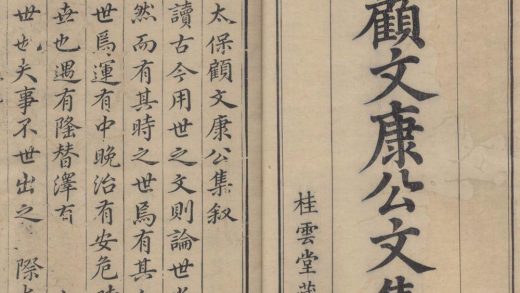 顧文康公文集
桂雲堂
太保顧文康公集叙
讀古今用世之文則論世
然而有其時之世焉有其
世焉運有中晚治有安危
也遇有隆替澤有
世也夫事不世出之 際